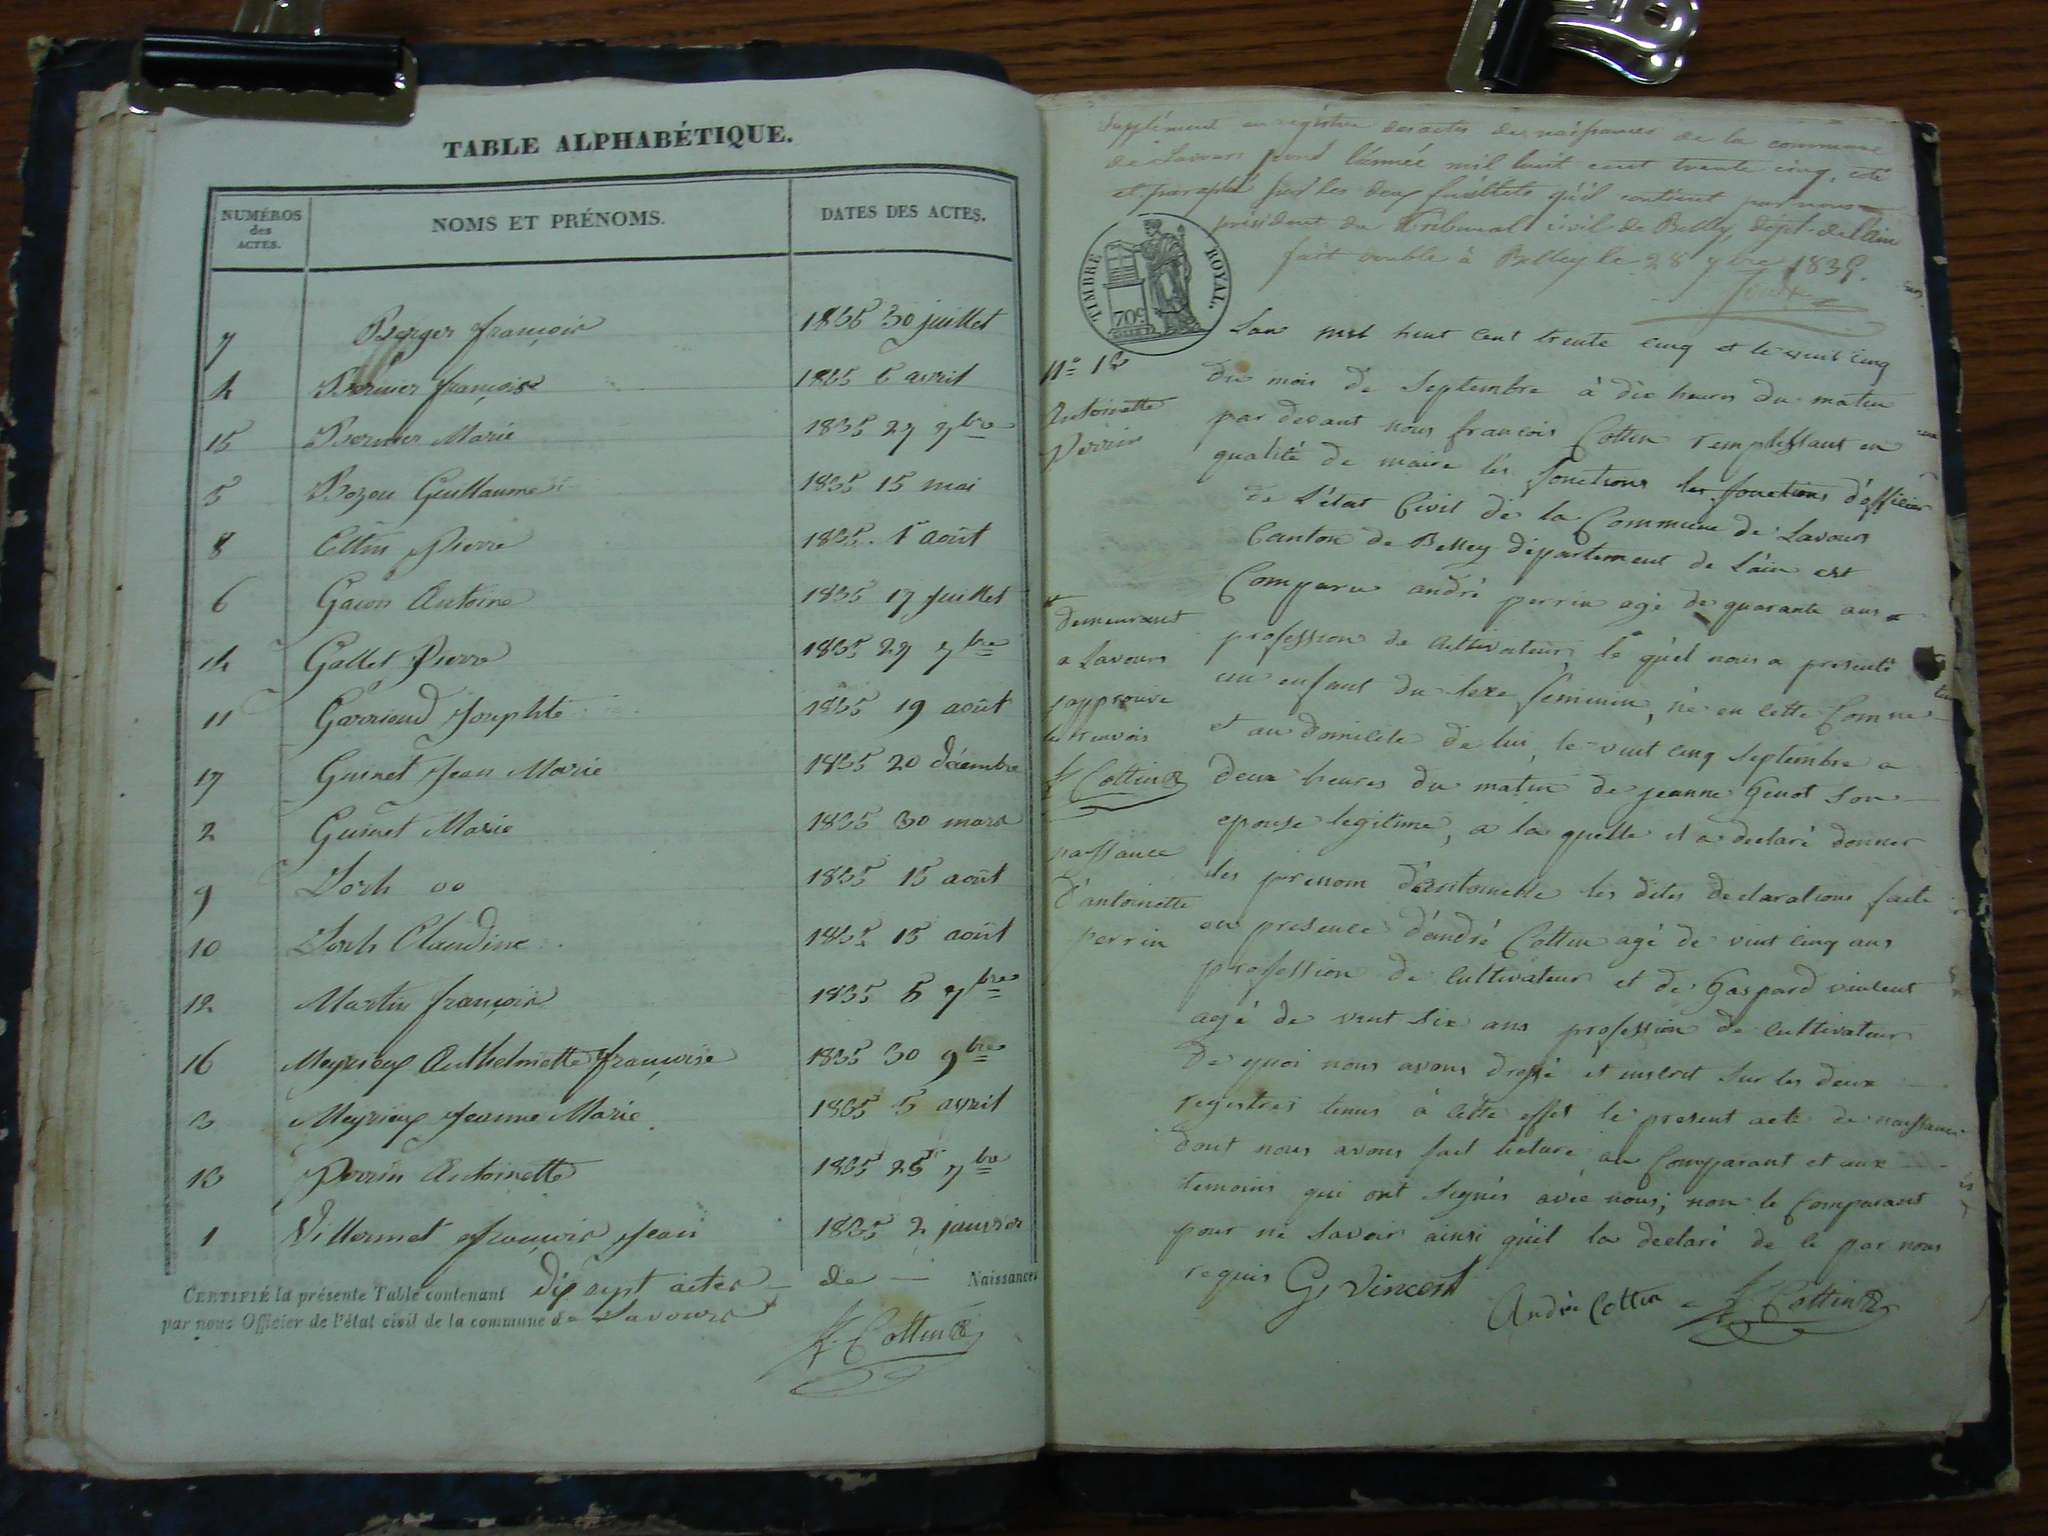 TABLE ALPHABÉTIQUE.
NUMÉROS des ACTES. NOMS ET PRÉNOMS. DATES DES ACTES.
7 Berger françois 1835 30 juillet
4 Bernier françoise 1835 6 avril
15 Bernier Marie 1835 27 7bre
5 Bozon Guillaume 1835 15 mai
8 Pierre 1835 1 août
6 Antoine 1835 17 juillet
14 Gallet Pierre 1835 27 7bre
11 Josephte 1835 19 août
17 Guinet Jean Marie 1835 20 décembre
2 Guinet Marie 1835 30 mars
9 1835 15 août
10 Claudine 1835 15 août
12 Martin françois 1835 6 7bre
16 Meyrieux Anthelmette françoise 1835 30 9bre
3 Meyrieux Jeanne Marie 1835 5 avril
13 Perrin Antoinette 1835 25 7bre
1 Villermet françois Jean 1835 2 janvier
CERTIFIÉ la présente Table contenant dix sept actes de Naissances
par nous Officier de l'état civil de la commune de Lavours
f. Cottin
Supplément au registre des actes de naissances de la commune
de Lavours pour l'année mil huit cent trente cinq, coté
et paraphé sur les deux feuillets qu'il contient par nous
président du Tribunal civil de Belley, dépt de l'Ain
fait double à Belley le 28 7bre 1835.
TIMBRE ROYAL.
709
N° 13
Antoinette
Perrin
L'an mil huit cent trente cinq et le vint cinq
du mois de Septembre à dix heures du matin
par devant nous françois Cottin remplissant en
qualité de maire les fonctions les fonctions d'officier
de L'état Civil de la Commune de Lavours
Canton de Belley département de L'ain est
Comparu andré perrin agé de quarante ans
profession de Cultivateur, le quel nous a presenté
un enfant du sexe féminin, né en cette Comne
et au domicile de lui, le vint cinq septembre a
deux heures du matin de jeanne Genot son
epouse legitime, a la quelle il a declaré donner
les prenom d'antoinette les dites declarations faite
en presence d'andré Cottin agé de vint cinq ans
profession de cultivateur et de Gaspard vincent
agé de vint six ans profession de cultivateur
De quoi nous avons dressé et inscrit sur les deux
registres tenus à cette effet le present acte de naissance
dont nous avons fait lecture au Comparant et aux
temoins qui ont signés avec nous, non le Comparant
pour ne savoir ainsi qu'il la declaré de ce par nous
requis G Vincent André Cottin f. Cottin
demeurant
a Lavours
japprouve
le renvois
f. Cottin
naissance
d'antoinette
perrin